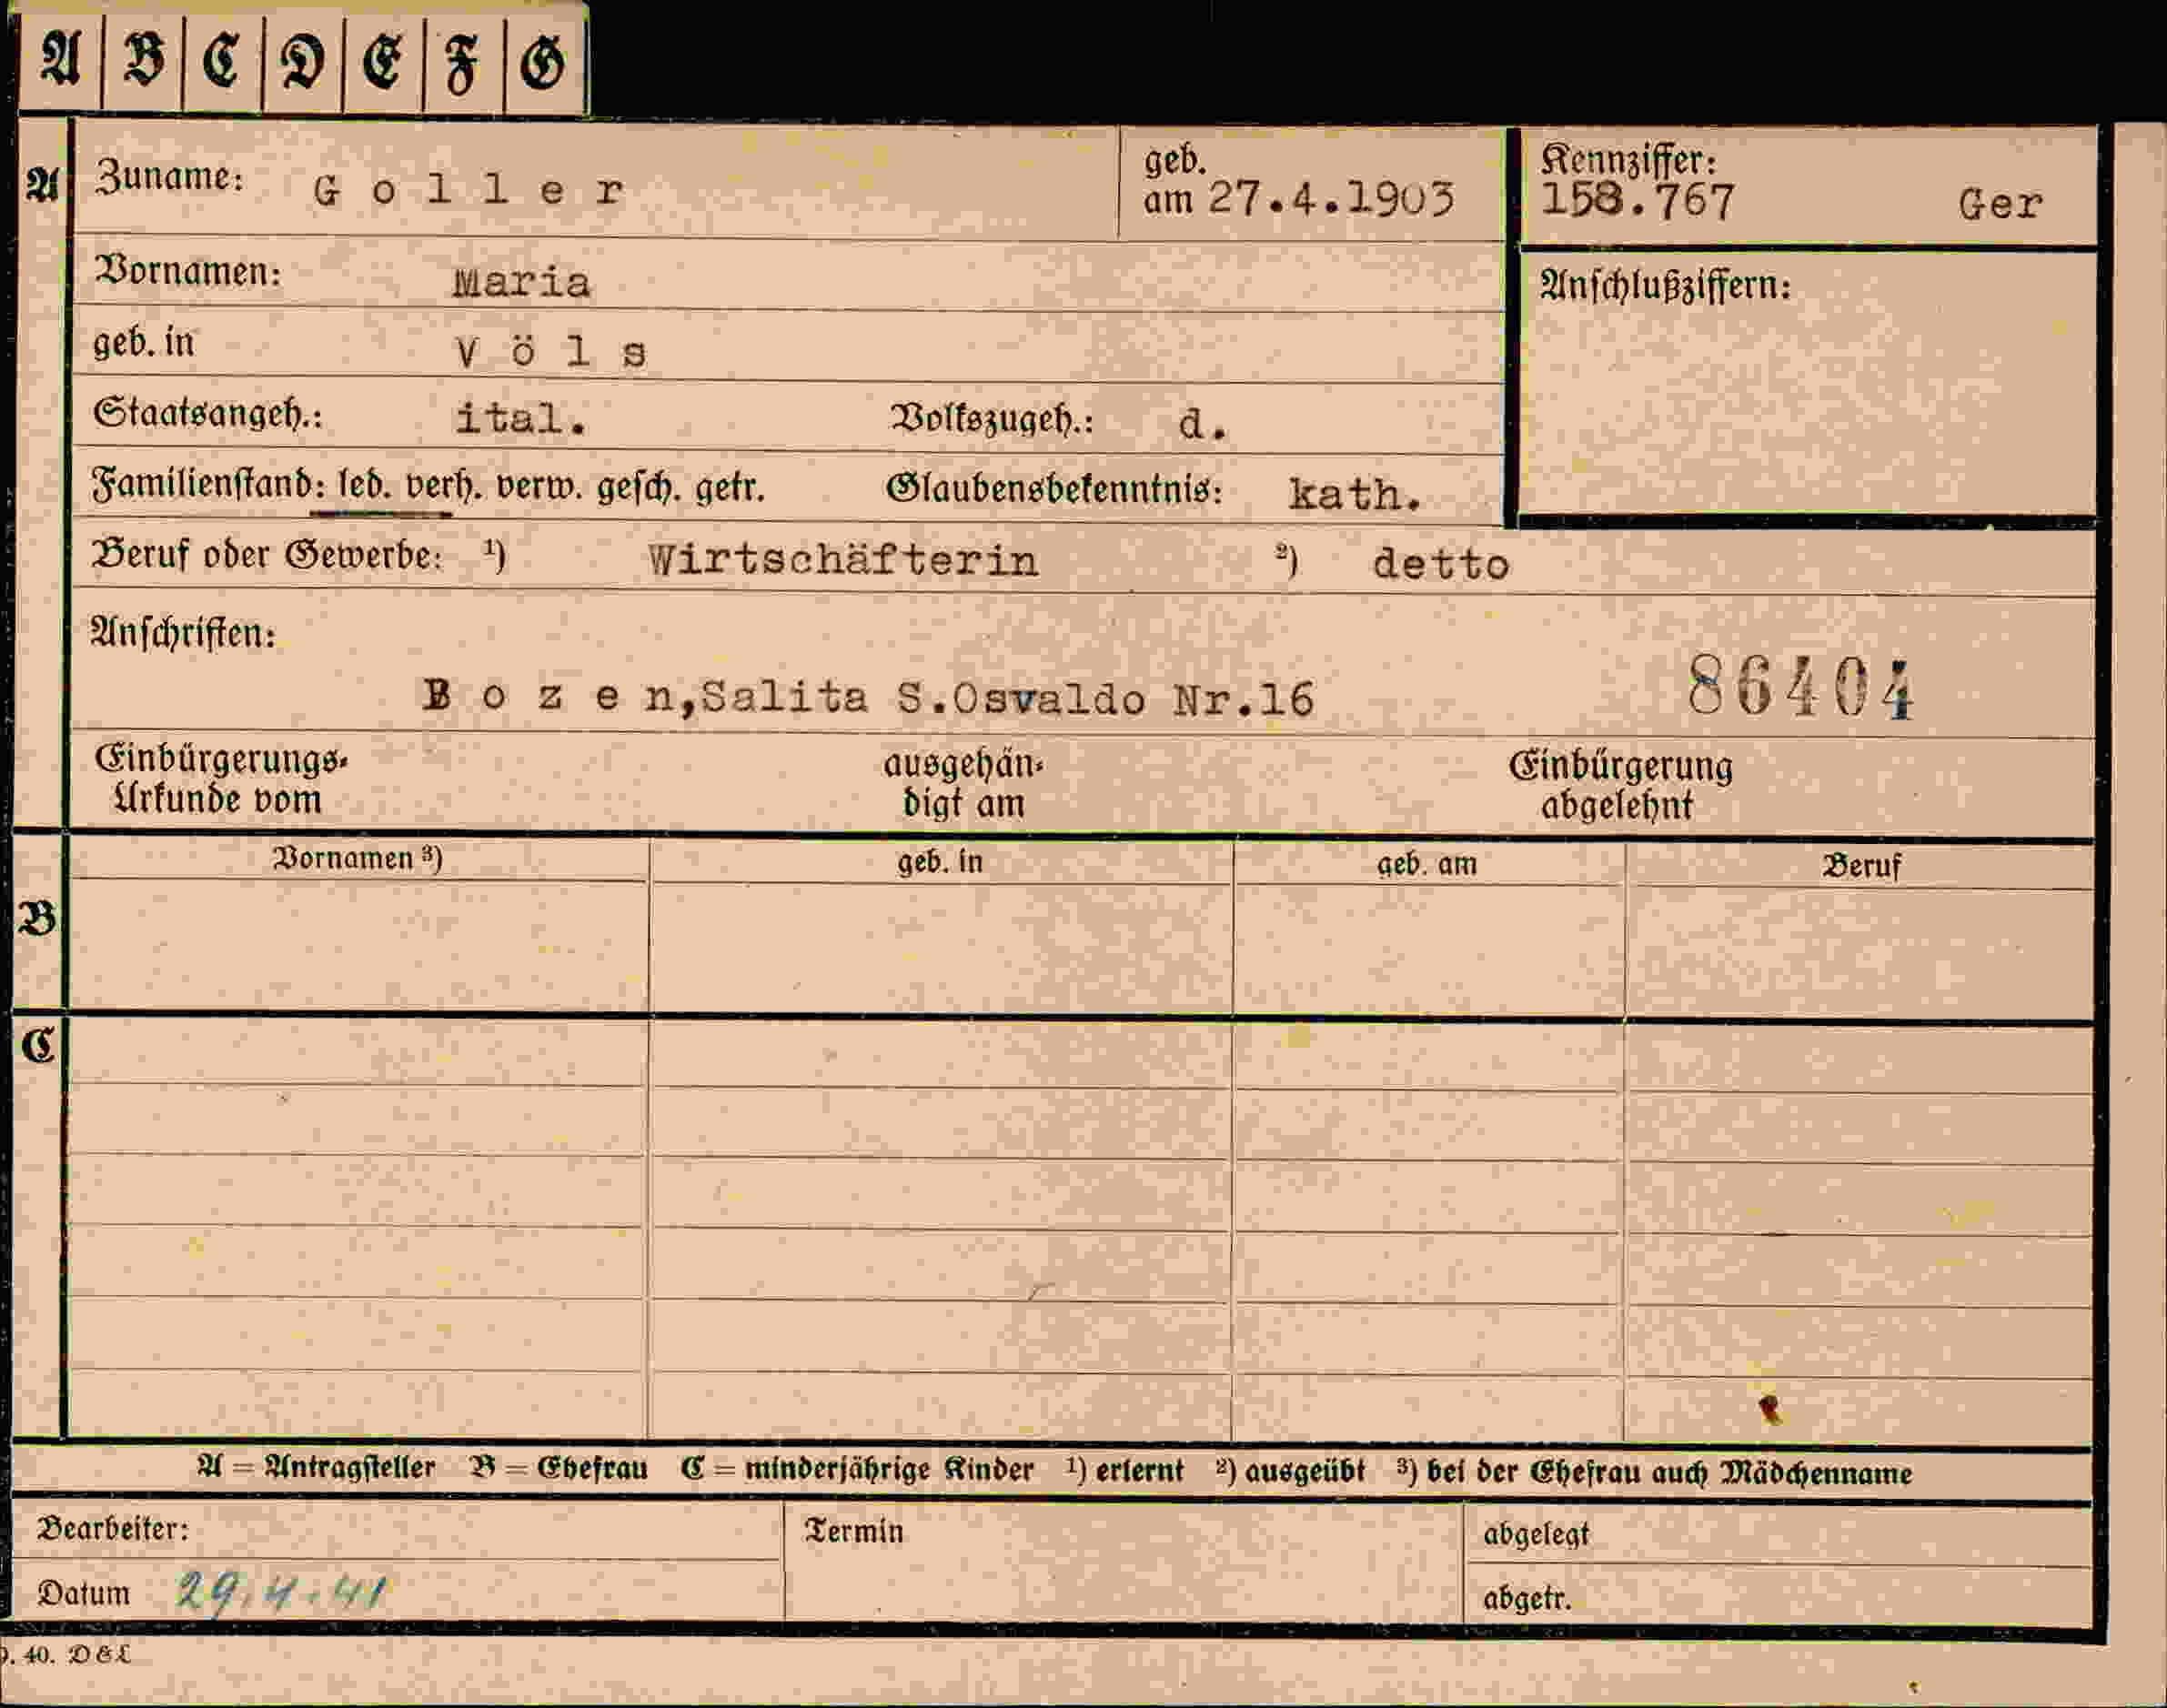 A B C D E F G
A Zuname: Goller geb. am 27.4.1903 Kennziffer: 158.767 Ger
Vornamen: Maria Anschlußziffern:
geb. in Völs
Staatsangeh.: ital. Volkszugeh.: d.
Familienstand: led. verh. verw. gesch. getr. Glaubensbekenntnis: kath.
Beruf oder Gewerbe: ¹) Wirtschäfterin ²) detto
Anschriften:
Bozen,Salita S.Osvaldo Nr.16 86404
Einbürgerungs- Urkunde vom ausgehän- digt am Einbürgerung abgelehnt
Vornamen ³) geb. in geb. am Beruf
B
C
A = Antragsteller B = Ehefrau C = minderjährige Kinder ¹) erlernt ²) ausgeübt ³) bei der Ehefrau auch Mädchenname
Bearbeiter: Termin abgelegt
Datum 29.4.41 abgetr.
40. D&L